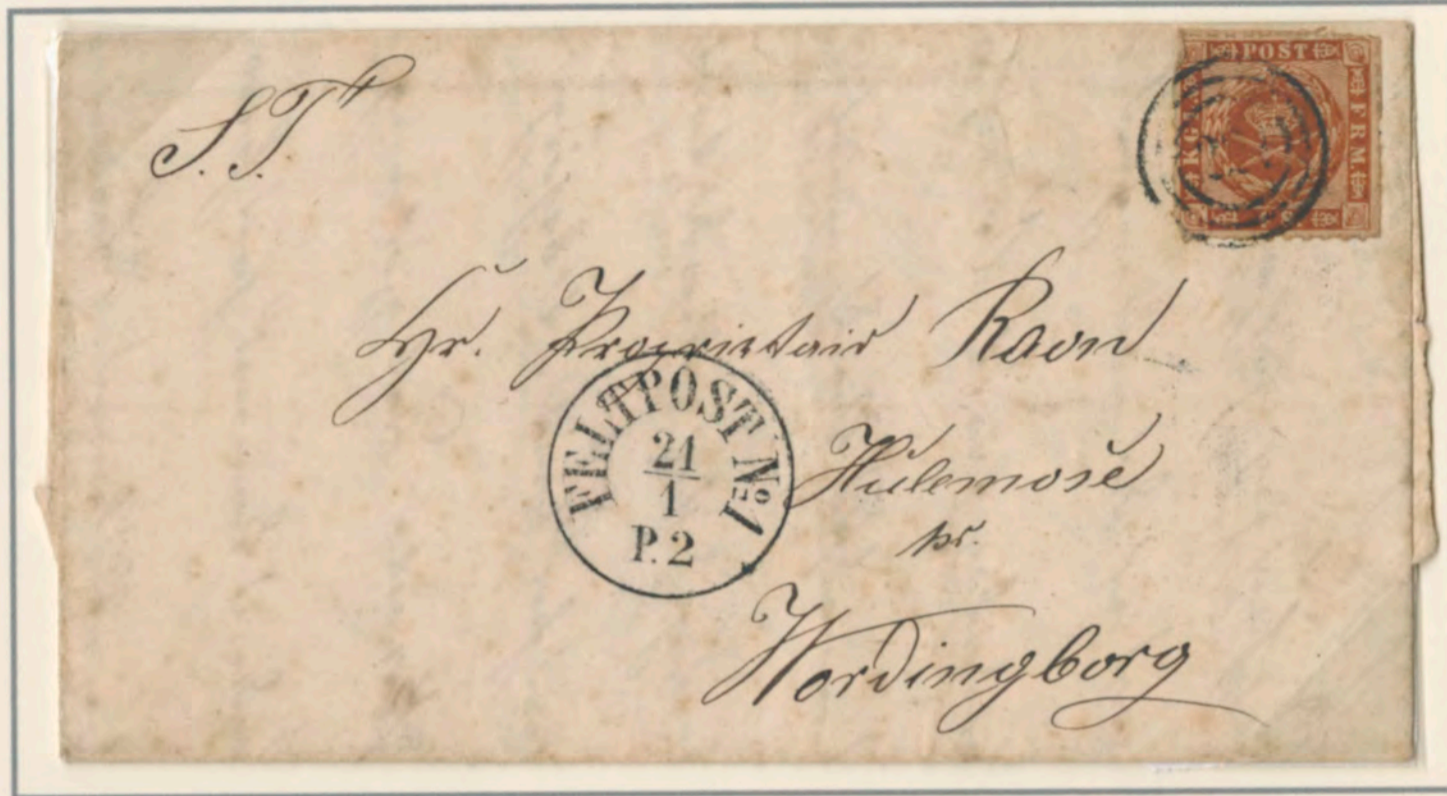 S. T.
KGL
POST
FRM
Hr. Proprietair Raon
FELTPOST No 1
21
1
P.2
Hulemose
pr.
Wordingborg